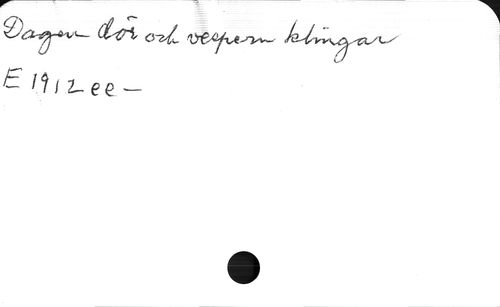 Dagen dör och vespern klingar
E 1912 ee —